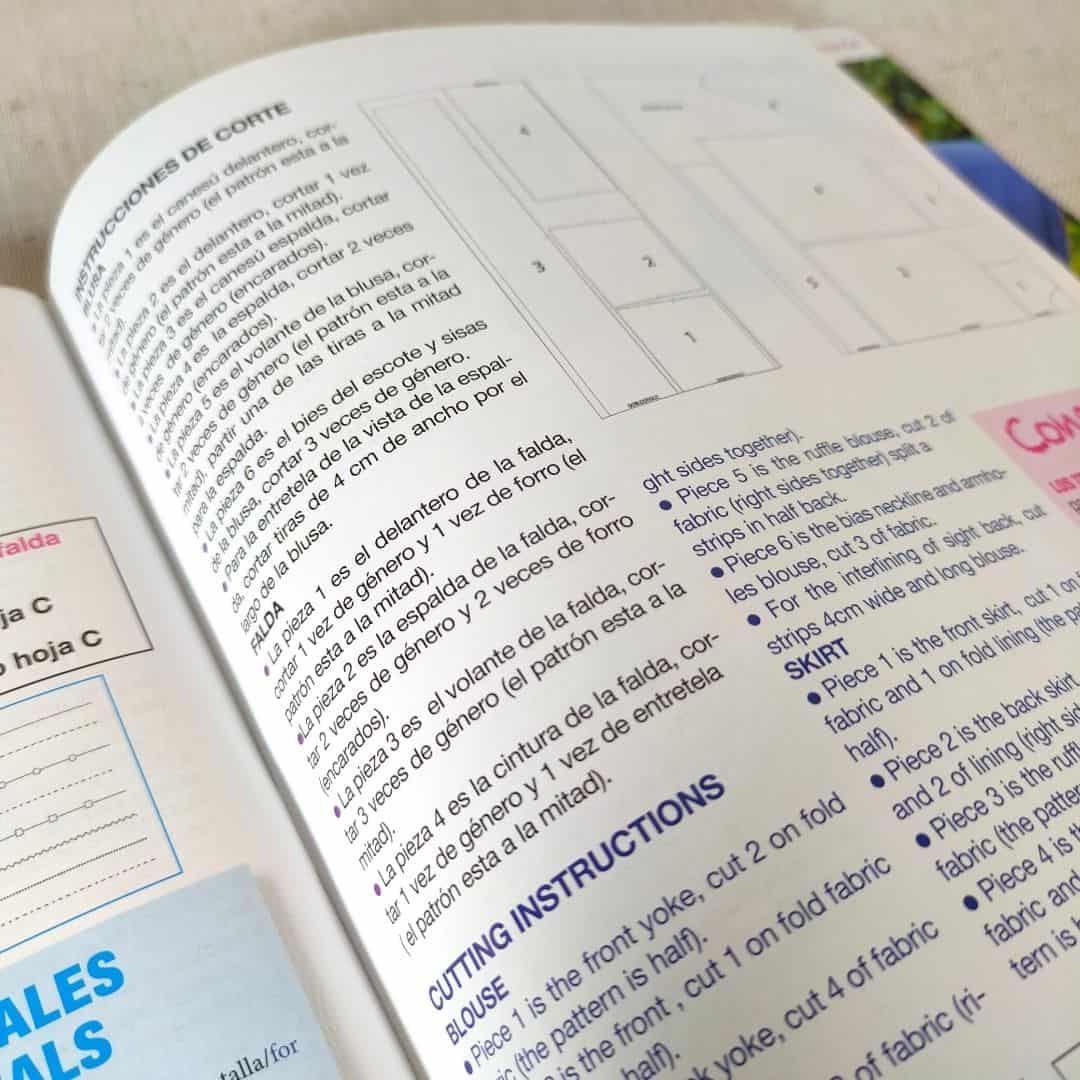 falda
ja C
o hoja C
ALES
ALS
talla/for
INSTRUCCIONES DE CORTE
BLUSA
La pieza 1 es el canesú delantero, cor-
tar 2 veces de género (el patrón esta a la
mitad).
La pieza 2 es el delantero, cortar 1 vez
de género (el patrón esta a la mitad).
La pieza 3 es el canesú espalda, cortar
veces de género (encarados).
La pieza 4 es la espalda, cortar 2 veces
de género (encarados).
• La pieza 5 es el volante de la blusa, cor-
tar 2 veces de género (el patrón esta a la
mitad), partir una de las tiras a la mitad
para la espalda.
• La pieza 6 es el bies del escote y sisas
de la blusa, cortar 3 veces de género.
• Para la entretela de la vista de la espal-
da, cortar tiras de 4 cm de ancho por el
largo de la blusa.
FALDA
• La pieza 1 es el delantero de la falda,
cortar 1 vez de género y 1 vez de forro (el
patrón esta a la mitad).
•La pieza 2 es la espalda de la falda, cor-
tar 2 veces de género y 2 veces de forro
(encarados).
• La pieza 3 es el volante de la falda, cor-
tar 3 veces de género (el patrón esta a la
mitad).
• La pieza 4 es la cintura de la falda, cor-
tar 1 vez de género y 1 vez de entretela
( el patrón esta a la mitad).
CUTTING INSTRUCTIONS
BLOUSE
•Piece 1 is the front yoke, cut 2 on fold
(the pattern is half).
is the front , cut 1 on fold fabric
half).
yoke, cut 4 of fabric
of fabric (ri-
4
3
2
1
5
ght sides together).
• Piece 5 is the ruffle blouse, cut 2 of
fabric (right sides together) split a
strips in half back.
• Piece 6 is the bias neckline and armho-
les blouse, cut 3 of fabric.
• For the interlining of sight back, cut
strips 4cm wide and long blouse.
SKIRT
• Piece 1 is the front skirt, cut 1 on
fabric and 1 on fold lining (the
half).
• Piece 2 is the back skirt,
and 2 of lining (right
• Piece 3 is the
fabric (the
• Piece 4 is
fabric and
tern is
Con
LOS